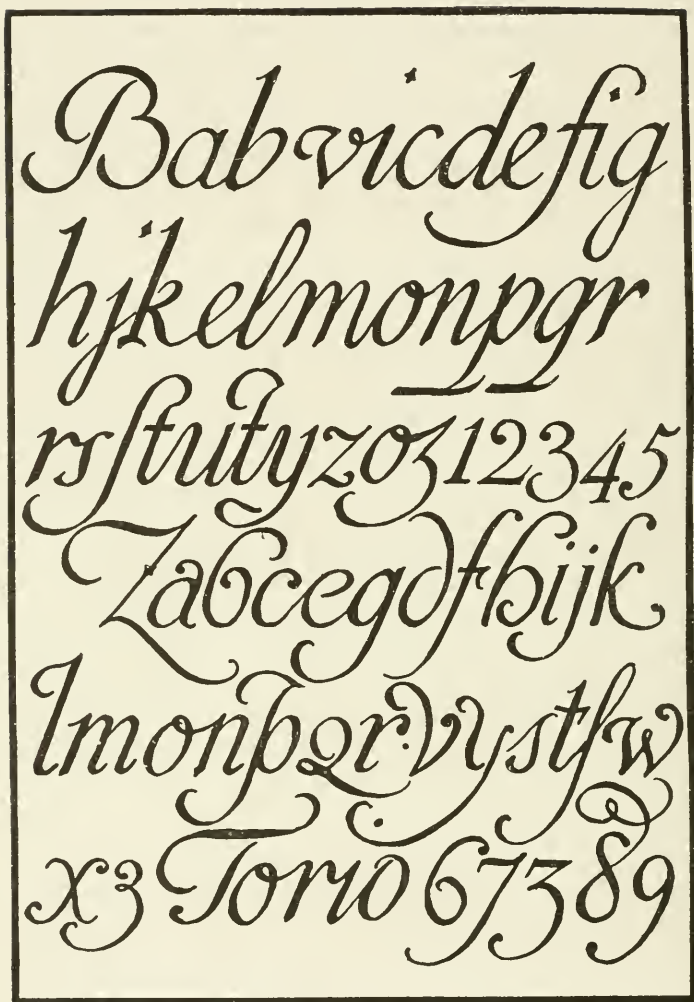 Babvicdefig
hjkelmonpqr
rsſtutyzoz12345
Zabcegdfhijk
lmonpqrvystſw
xz Torio 67389